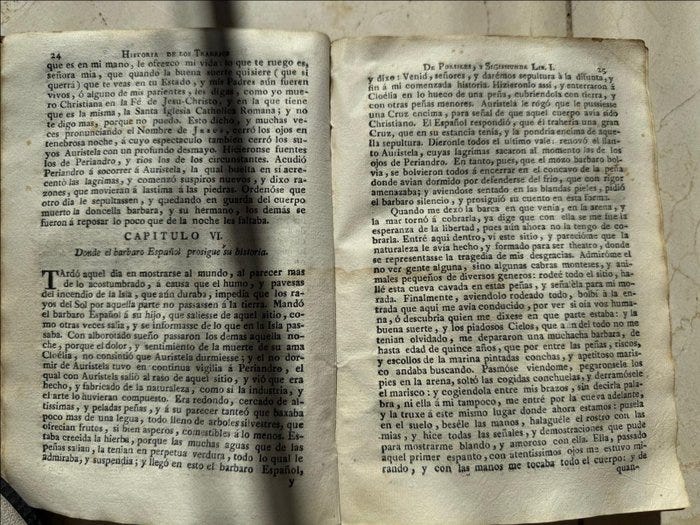 24 HISTORIA DE LOS TRABAJOS
que es en mi mano, le ofrezco mi vida: lo que te ruego es,
señora mia, que quando la buena suerte quisiere (que si
querrá) que te veas en tu Estado, y mis Padres aún fueren
vivos, ó alguno de mis parientes, les digas, como yo mue-
ro Christiana en la Fé de Jesu-Christo, y en la que tiene
que es la misma, la Santa Iglesia Catholica Romana; y no
te digo mas, porque no puedo. Esto dicho, y muchas ve-
ces pronunciando el Nombre de JESUS, cerró los ojos en
tenebrosa noche, à cuyo espectaculo tambien cerró los su-
yos Auristela con un profundo desmayo. Hicieronse fuentes
los de Periandro, y rios los de los circunstantes. Acudió
Periandro á socorrer á Auristela, la qual buelta en sí acre-
centó las lagrimas, y comenzó suspiros nuevos, y dixo ra-
zones, que movieran á lastima á las piedras. Ordenóse que
otro dia le sepultassen, y quedando en guarda del cuerpo
muerto la doncella barbara, y su hermano, los demás se
fueron á reposar lo poco que de la noche les faltaba.
CAPITULO VI.
Donde el barbaro Español prosigue su historia.
TArdó aquel dia en mostrarse al mundo, al parecer mas
de lo acostumbrado, á causa que el humo, y pavesas
del incendio de la Isla, que aún duraba, impedia que los ra-
yos del Sol por aquella parte no passassen á la tierra. Mandó
el barbaro Español á su hijo, que saliesse de aquel sitio, co-
mo otras veces salia, y se informasse de lo que en la Isla pas-
saba. Con alborotado sueño passaron los demás aquella no-
che, porque el dolor, y sentimiento de la muerte de su ama
Cloélia, no consintió que Auristela durmiesse; y el no dor-
mir de Auristela tuvo en continua vigilia á Periandro, el
qual con Auristela salió al raso de aquel sitio, y vió que era
hecho, y fabricado de la naturaleza, como si la industria, y
el arte lo huvieran compuesto. Era redondo, cercado de al-
tissimas, y peladas peñas, y á su parecer tanteó que baxaba
poco mas de una legua, todo lleno de arboles silvestres, que
ofrecian frutos, si bien asperos, comestibles á lo menos. Es-
taba crecida la hierba, porque las muchas aguas que de las
peñas salian, la tenian en perpetua verdura, todo lo qual le
admiraba, y suspendia; y llegó en esto el barbaro Español,
y
DE PERSILES, Y SIGISMUNDA LIB. I. 25
y dixo: Venid, señores, y darémos sepultura á la difunta, y
fin á mi comenzada historia. Hizieronlo assi, y enterraron á
Cloélia en lo hueco de una peña, cubriendola con tierra, y
con otras peñas menores. Auristela le rogó que le pusiesse
una Cruz encima, para señal de que aquel cuerpo avia sido
Christiano. El Español respondió, que él traheria una gran
Cruz, que en su estancia tenia, y la pondria encima de aque-
lla sepultura. Dieronle todos el ultimo vale: renovó el llan-
to Auristela, cuyas lagrimas sacaron al momento las de los
ojos de Periandro. En tanto, pues, que el mozo barbaro bol-
via, se bolvieron todos á encerrar en el concavo de la peña
donde avian dormido por defenderse del frio, que con rigor
amenazaba; y aviendose sentado en las blandas pieles, pidió
el barbaro silencio, y prosiguió su cuento en esta forma.
Quando me dexó la barca en que venia, en la arena, y
la mar tornó á cobrarla, ya dige que con ella se me fue la
esperanza de la libertad, pues aún ahora no la tengo de co-
brarla. Entré aqui dentro, vi este sitio, y parecióme que la
naturaleza le avia hecho, y formado para ser theatro, donde
se representasse la tragedia de mis desgracias. Admiróme el
no ver gente alguna, sino algunas cabras monteses, y ani-
males pequeños de diversos generos: rodeé todo el sitio, ha-
llé esta cueva cavada en estas peñas, y señaléla para mi mo-
rada. Finalmente, aviendolo rodeado todo, bolbí á la en-
trada que aqui me avia conducido, por ver si oìa voz huma-
na, ó descubria quien me dixese en que parte estaba: y la
buena suerte, y los piadosos Cielos, que aún del todo no me
tenian olvidado, me depararon una muchacha barbara, de
hasta edad de quince años, que por entre las peñas, riscos,
y escollos de la marina pintadas conchas, y apetitoso maris-
co andaba buscando. Pasmóse viendome, pegaronsele los
pies en la arena, soltó las cogidas conchuelas, y derramósele
el marisco: y cogiendola entre mis brazos, sin decirla pala-
bra, ni ella á mi tampoco, me entré por la cueva adelante,
y la truxe á este mismo lugar donde ahora estamos: pusela
en el suelo, beséle las manos, halaguéle el rostro con las
mias, y hice todas las señales, y demostraciones que pude
para mostrarme blando, y amoroso con ella. Ella, passado
aquel primer espanto, con atentissimos ojos me estuvo mi-
rando, y con las manos me tocaba todo el cuerpo: y de
quan-